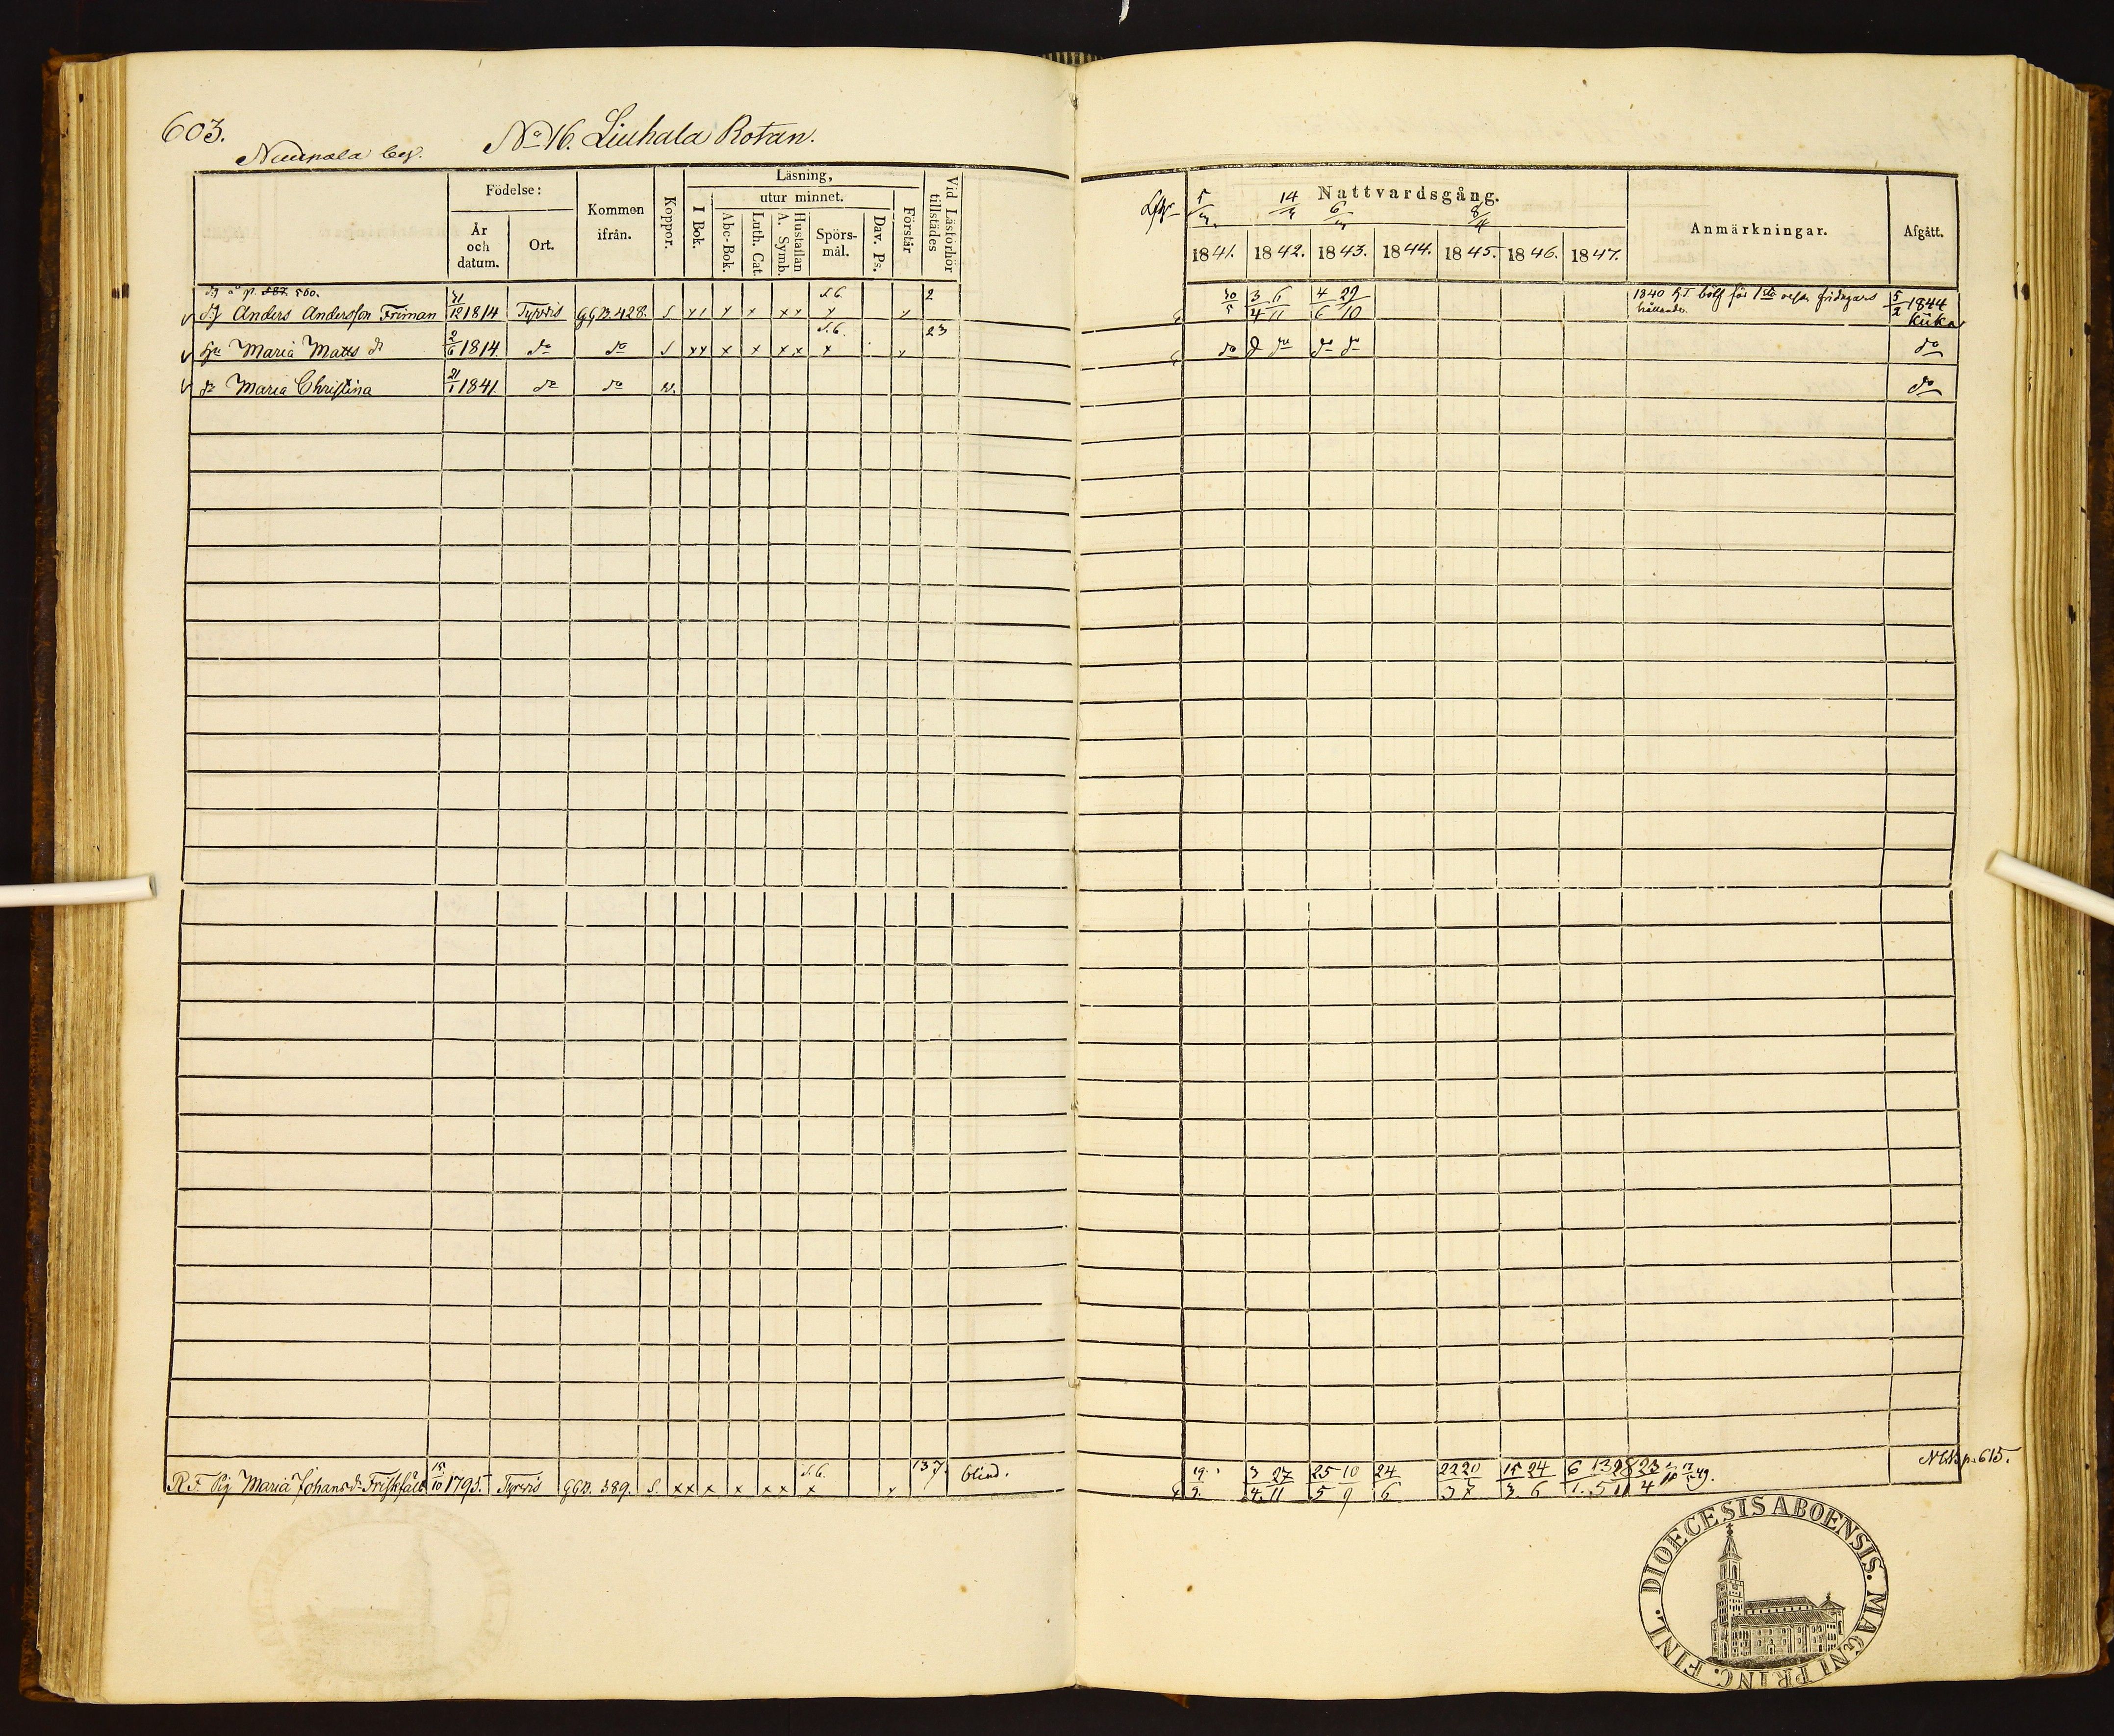 603.
No 16. Liuhala Rotan.
Födelse:
År och datum.
Ort.
Kommen ifrån.
Koppor.
Läsning,
I Bok.
utur minnet.
Abc-Bok.
Luth. Cat.
Hustaflan A. Symb.
Spörsmål.
Dav. Ps.
Förstår
Vid Läsförhör tillstädes
Nattvardsgång.
5 14 6 8/4
1841. 1842. 1843. 1844. 1845. 1846. 1847.
Anmärkningar.
Afgått.
å p. 587. 560. S.6. 2
Anders Andersson Friman 31/12 1814 Tyrvis GGB 428. S x x x x x x x 30/5 3/4 6/11 4/6 29/10 1840 för 1sta 5/2 1844
hållande. Kiika
S.6. 23
Maria Matts dr 2/6 1814 do do S x x x x x x x do do do do
dr Maria Christina 21/1 1841. do do v. do
R.F. Pig Maria Johansdr Friskfält 15/10 1795. Tyrvis GGB. 389. S. x x x x x x x S.6. 137. blind. 19. 3/4 27/11 25/5 10/9 24/6 22/3 20/7 15/3 24/6 6/1 13/5 28/11 23/4 49. NCB p. 615.
FINL. DIOECESIS ABOENSIS. MAGNI PRINC.